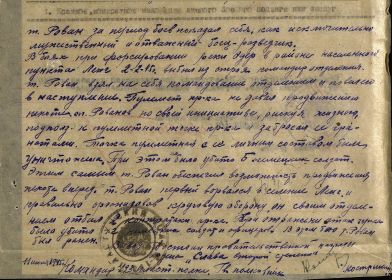 I. Краткое, конкретное изложение личного боевого подвига или заслуг
т. Рован за период боев показал себя, как исключительно
мужественный и отважный боец-разведчик.
Так при форсировании реки Одер в районе населенного
пункта 2-2-45 выбыл из строя командир отделения.
т. Рован взял на себя командование отделением и повел его
в наступление. Пулемет пр-ка не давал продвижению
пехоты, т. Рован по своей инициативе, рискуя жизнью,
подполз к пулеметной точке пр-ка и забросал ее гра-
натами. Точка пулеметная с ее личным составом была
уничтожена. При этом было убито 5 немецких солдат.
Этим самым т. Рован обеспечил возможность продвижения
пехоты вперед. т. Рован первый ворвался в селение
правильно организовал круговую оборону он своим отделе-
нием отбил контратаки пр-ка. При отражении атак пр-ка
было убито солдат и офицеров. В этом бою т. Рован
был ранен.
достоин правительственной награды
"Слава второй степени"
Командир полка